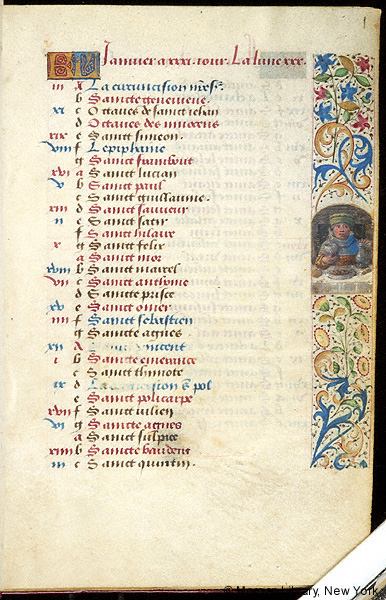 1
KL Janvier a xxxi. iour. La lune xxx.
iii A La circuncision nrẽs.
b Saincte genevieve
xi c Octaves de sainct iehan
d Octaves des innocens
xix e Sainct simeon.
viii f Lepiphanie
g Sainct frambout
xvi a Sainct lucian
v b Sainct paul
c Sainct guillaume.
xiii d Sainct sauveur
ii e Sainct satir
f Sainct hilaire
x g Sainct felix
a Sainct mor
xviii b Sainct marcel
vii c Sainct anthoine
d Saincte prisce
xv e Sainct omer
iiii f Sainct sebastien
g Saincte agnes
xii A vincent
i b Saincte emerance
c Sainct thimote
ix d La s. pol
e Sainct policarpe
xvii f Sainct iulien
vi g Saincte agnes
a Sainct sulpice
xiiii b Saincte baudour
iii c Sainct quintin.
© Morgan Library, New York